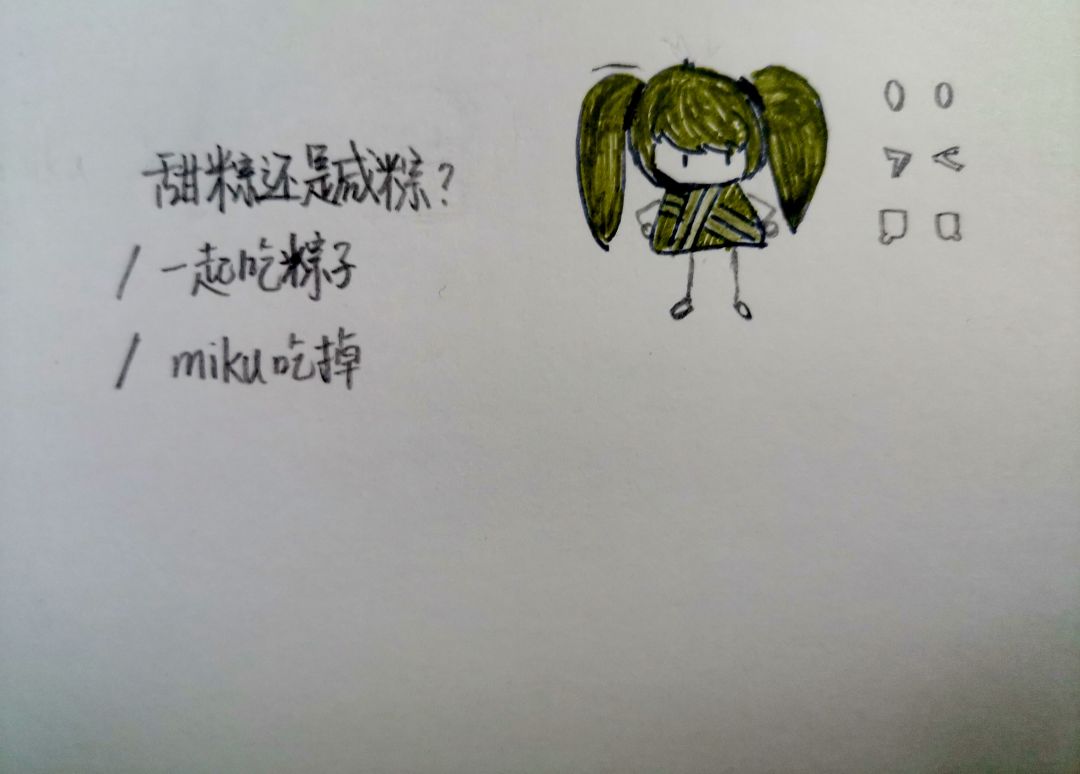 甜粽还是咸粽？
/ 一起吃粽子
/ miku吃掉